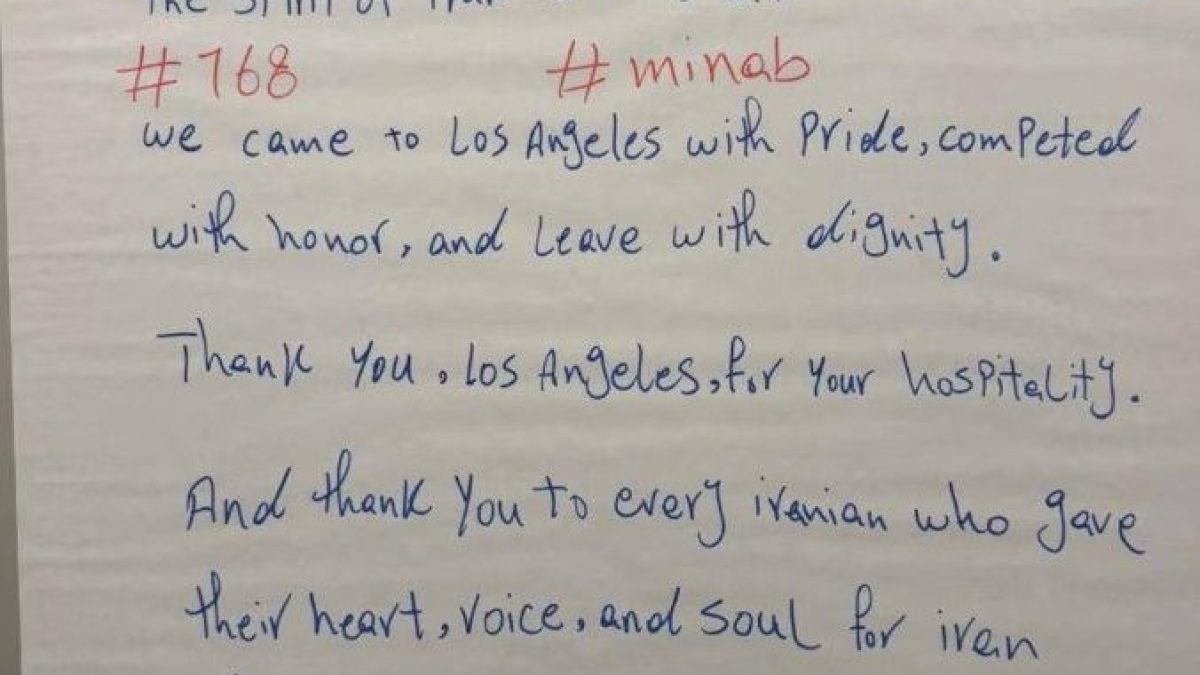 #168 #minab
we came to Los Angeles with Pride, competed
with honor, and Leave with dignity.
Thank you, Los Angeles, for your hospitality.
And thank you to every iranian who gave
their heart, voice, and soul for iran